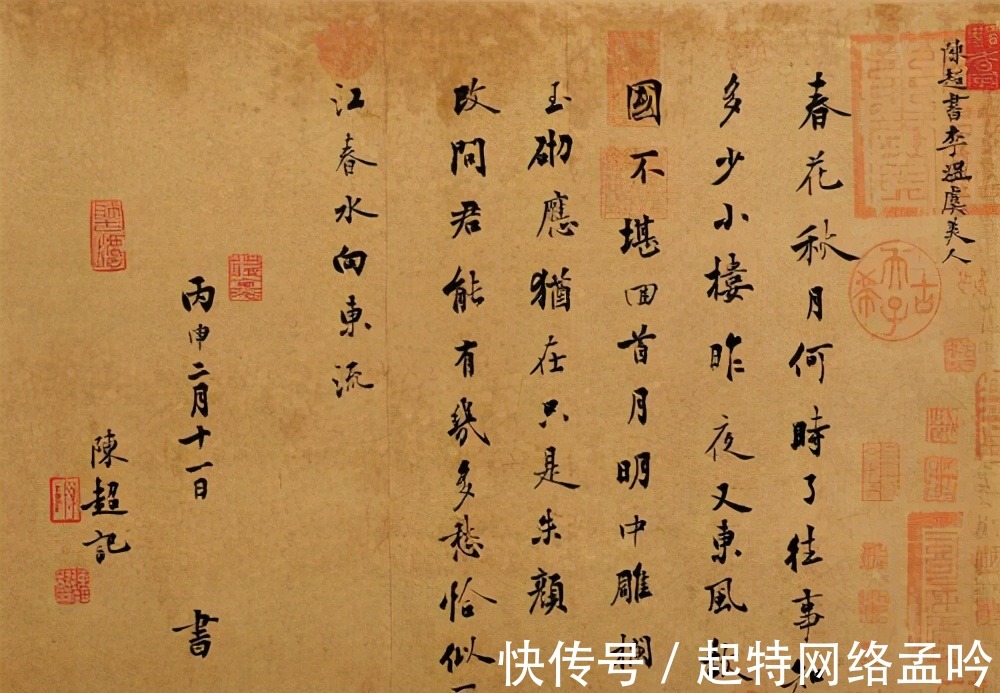 陳超書李煜虞美人
春花秋月何時了往事知
多少小樓昨夜又東風故
國不堪回首月明中雕欄
玉砌應猶在只是朱顏
改問君能有幾多愁恰似一
江春水向東流
丙申二月十一日 書
陳超記
古希天子
快传号 / 起特网络孟吟